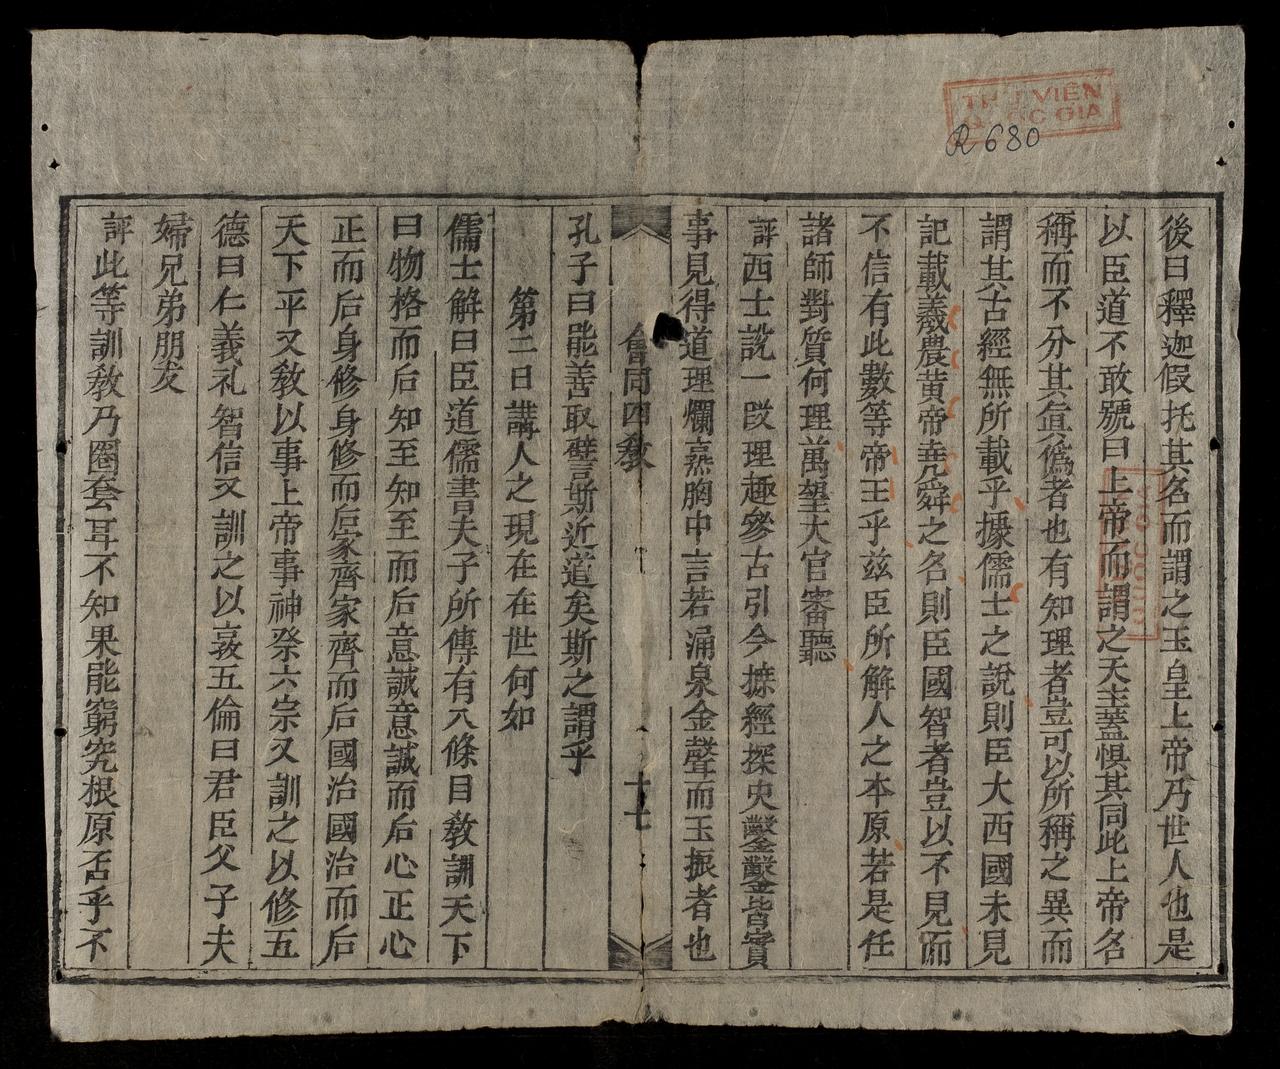 THƯ VIỆN
QUỐC GIA
R 680
後曰釋迦假托其名而謂之玉皇上帝乃世人也是
以臣道不敢號曰上帝而謂之天主蓋惧其同此上帝名
稱而不分其眞僞者也有知理者豈可以所稱之異而
謂其古經無所載乎據儒士之說則臣大西國未見
記載羲農黄帝堯舜之名則臣國智者豈以不見而
不信有此數等帝王乎兹臣所解人之本原若是任
諸師對質何理萬望大官審聽
評西士說一段理趣參古引今摭經探史鑿鑿皆實
事見得道理爛熹胸中言若涌泉金聲而玉振者也
會同四教
十七
孔子曰能善取譬斯近道矣斯之謂乎
第二日講人之現在在世何如
儒士解曰臣道儒書夫子所傳有八條目教訓天下
曰物格而后知至知至而后意誠意誠而后心正心
正而后身修身修而后家齊家齊而后國治國治而后
天下平又教以事上帝事神祭六宗又訓之以修五
德曰仁義礼智信又訓之以敦五倫曰君臣父子夫
婦兄弟朋友
評此等訓教乃圈套耳不知果能窮究根原否乎不